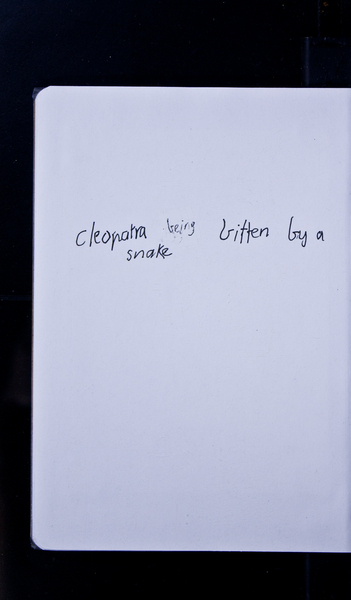 cleopatra being bitten by a
snake